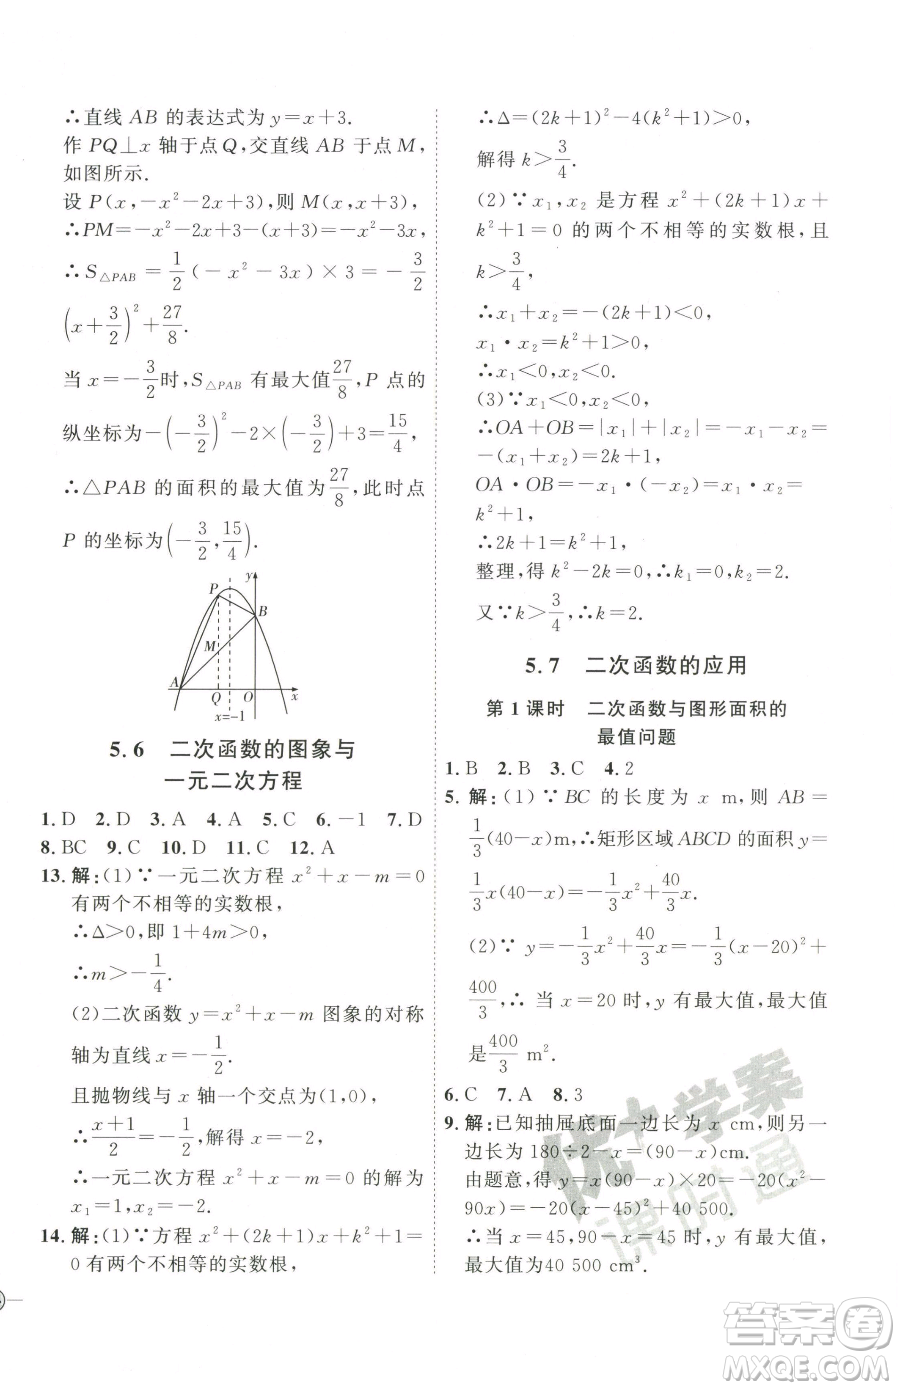 ∴直线 AB 的表达式为 y=x+3.
作 PQ⊥x 轴于点 Q,交直线 AB 于点 M,
如图所示.
设 P(x,-x²-2x+3),则 M(x,x+3),
∴PM=-x²-2x+3-(x+3)=-x²-3x,
∴S△PAB = 1/2(-x²-3x)×3=-3/2
(x+3/2)²+27/8.
当 x=-3/2时,S△PAB 有最大值27/8,P 点的
纵坐标为-(-3/2)²-2×(-3/2)+3=15/4,
∴△PAB 的面积的最大值为27/8,此时点
P 的坐标为(-3/2,15/4).
y
P
B
M
A
Q
O
x
x=-1
5.6 二次函数的图象与
一元二次方程
1.D 2.D 3.A 4.A 5.C 6.-1 7.D
8.BC 9.C 10.D 11.C 12.A
13.解:(1)∵一元二次方程 x²+x-m=0
有两个不相等的实数根,
∴Δ>0,即 1+4m>0,
∴m>-1/4.
(2)二次函数 y=x²+x-m 图象的对称
轴为直线 x=-1/2.
且抛物线与 x 轴一个交点为(1,0),
∴(x+1)/2=-1/2,解得 x=-2.
∴一元二次方程 x²+x-m=0 的解为
x₁=1,x₂=-2.
14.解:(1)∵方程 x²+(2k+1)x+k²+1=
0 有两个不相等的实数根,
∴Δ=(2k+1)²-4(k²+1)>0,
解得 k>3/4.
(2)∵x₁,x₂ 是方程 x²+(2k+1)x+
k²+1=0 的两个不相等的实数根,且
k>3/4,
∴x₁+x₂=-(2k+1)<0,
x₁·x₂=k²+1>0,
∴x₁<0,x₂<0.
(3)∵x₁<0,x₂<0,
∴OA+OB=|x₁|+|x₂|=-x₁-x₂=
-(x₁+x₂)=2k+1,
OA·OB=-x₁·(-x₂)=x₁x₂=
k²+1,
∴2k+1=k²+1.
整理,得 k²-2k=0,∴k₁=0,k₂=2.
又∵k>3/4,∴k=2.
5.7 二次函数的应用
第1课时 二次函数与图形面积的
最值问题
1.B 2.B 3.C 4.2
5.解:(1)∵BC 的长度为 x m,则 AB=
1/3(40-x)m,∴矩形区域 ABCD 的面积 y=
1/3x(40-x)=-1/3x²+40/3x.
(2)∵ y=-1/3x²+40/3x=-1/3(x-20)²+
400/3,∴ 当 x=20 时,y 有最大值,最大值
是400/3 m².
6.C 7.A 8.3
9.解:已知抽屉底面一边长为 x cm,则另一
边长为 180÷2-x=(90-x)cm.
由题意,得 y=x(90-x)·20=-20(x²-
90x)=-20(x-45)²+40 500.
∴当 x=45,90-x=45 时,y 有最大值,
最大值为40 500 cm³.
优+学案
课时通
答案圈
MXQE.COM